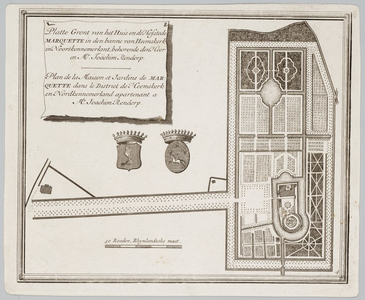 Platte Gront van het Huis en de Hofstede
MARQUETTE in den banne van Heemskerk
in Noordkennemerlant, behorende de Heer
en Mr. Joachim Rendorp.
Plan de la Maison et Jardins de MAR
QUETTE dans le District de Heemskerk
en Nordkennemerland apartenant a
Mr. Joachim Rendorp.
40 Rooden, Rhynlandsche maat.